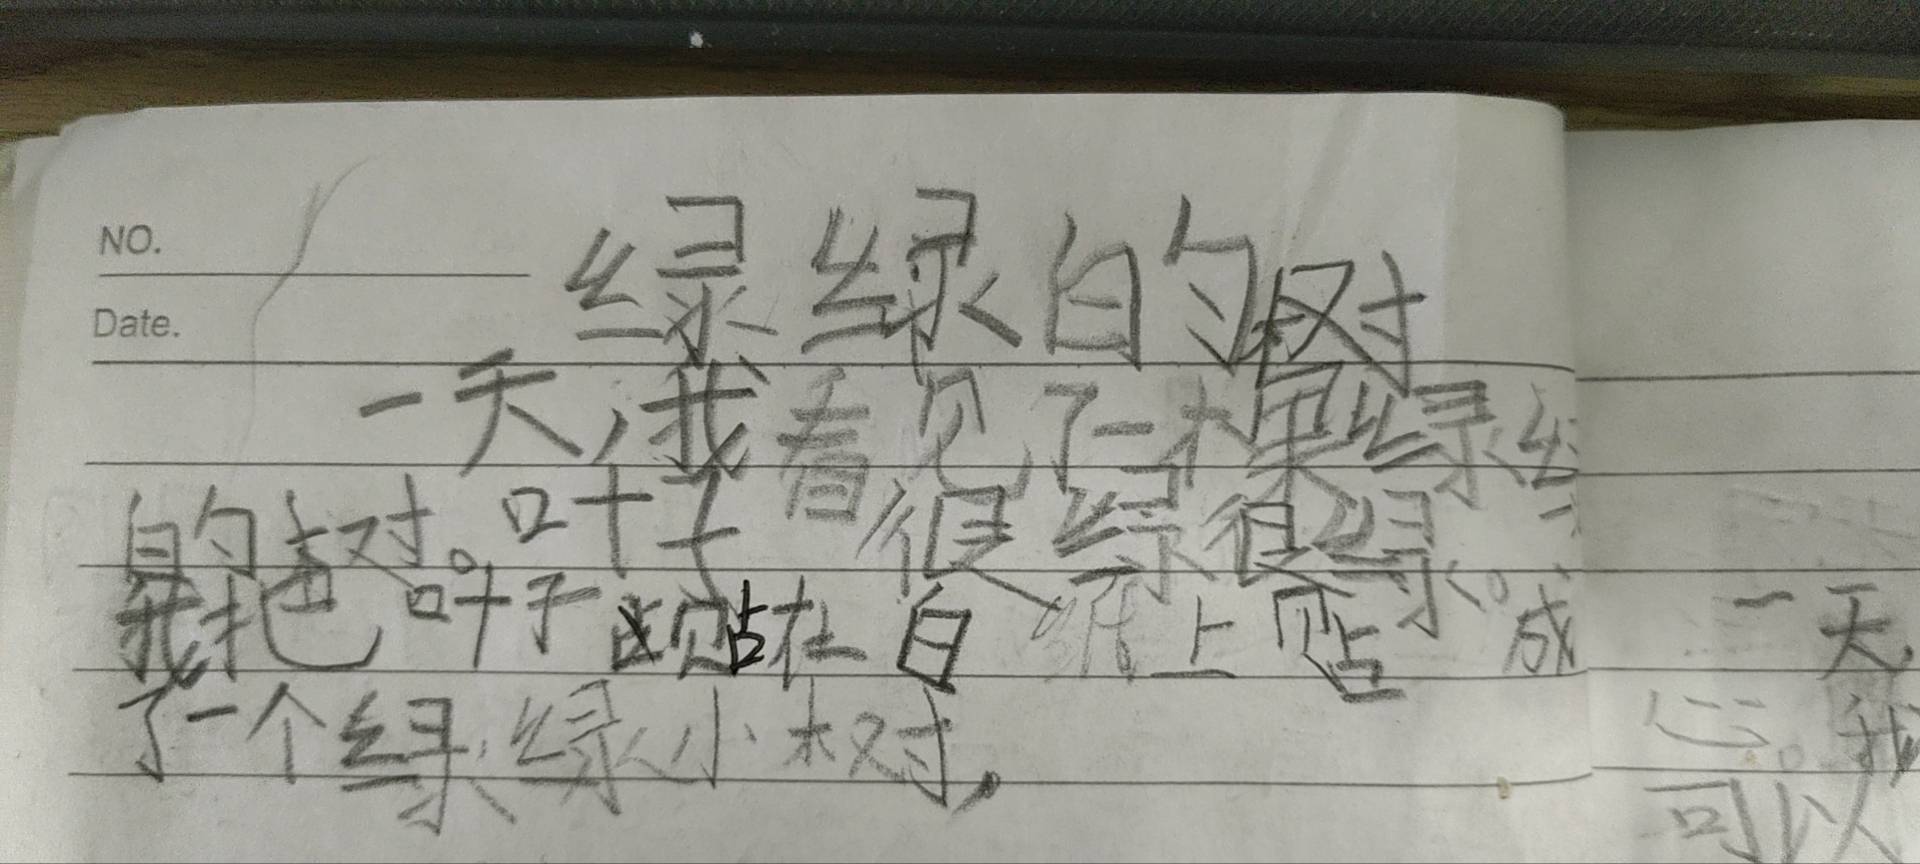 NO.
Date.
绿绿的树
一天,我看见了一棵绿绿
的树。叶子很绿很绿。
我把叶子贴在白纸上贴成
了一个绿绿小树,
一天,
心。我
可以